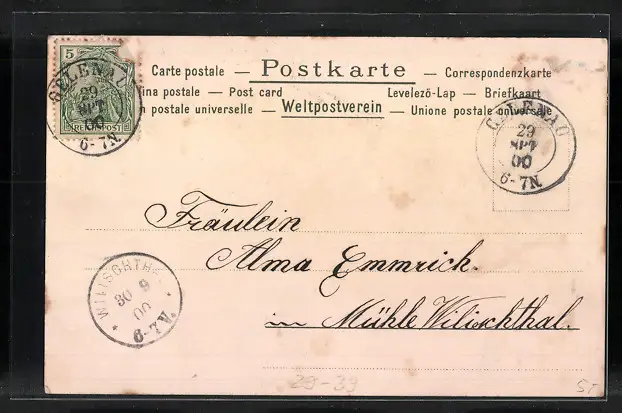 5
REICHSPOST
GELENAU
29
SPT
00
6-7N.
Carte postale — Postkarte — Correspondenzkarte
ina postale — Post card Levelező-Lap — Briefkaart
n postale universelle — Weltpostverein — Union postale universelle
GELENAU
29
SPT
00
6-7N.
Fräulein
Alma Emmrich.
in Mühle Wilischthal.
WILISCHTHAL
30 9
00
6-7V.
29-39
5,-